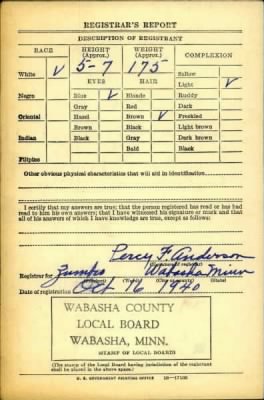 REGISTRAR'S REPORT
DESCRIPTION OF REGISTRANT
RACE HEIGHT (Approx.) WEIGHT (Approx.) COMPLEXION
White ✓ 5-7 175 Sallow
EYES HAIR Light ✓
Negro Blue ✓ Blonde Ruddy
Gray Red Dark
Oriental Hazel Brown ✓ Freckled
Brown Black Light brown
Indian Black Gray Dark brown
Bald Black
Filipino
Other obvious physical characteristics that will aid in identification
I certify that my answers are true; that the person registered has read or has had
read to him his own answers; that I have witnessed his signature or mark and that
all of his answers of which I have knowledge are true, except as follows:
Percy F. Anderson
(Signature of registrar)
Registrar for Zumbro Wabasha Minn
(City or county) (State)
Date of registration Oct 16 1940
WABASHA COUNTY
LOCAL BOARD
WABASHA, MINN.
(STAMP OF LOCAL BOARD)
(The stamp of the Local Board having jurisdiction of the registrant
shall be placed in the above space.)
U. S. GOVERNMENT PRINTING OFFICE 16-17105